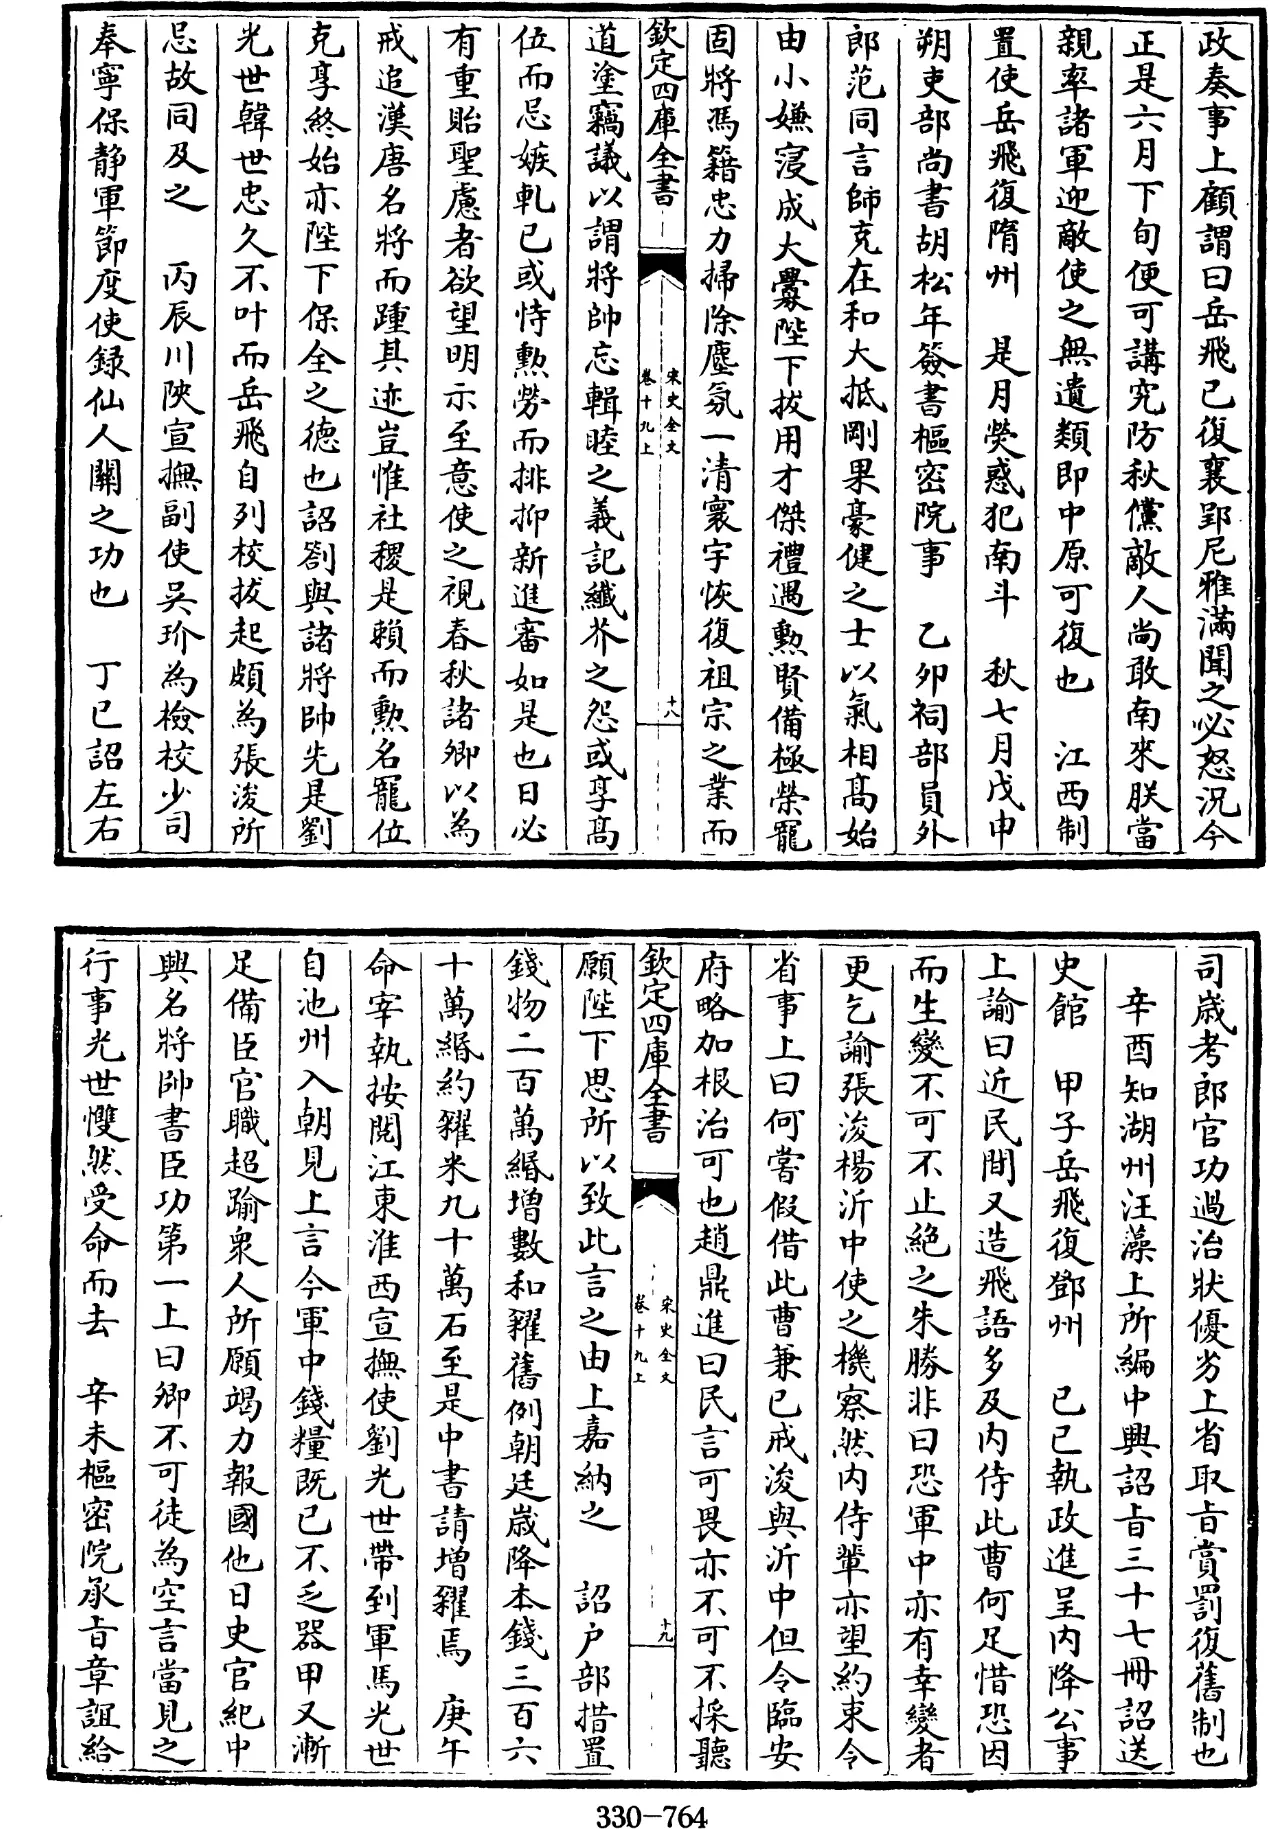 政奏事上顧謂曰岳飛已復襄郢尼雅滿聞之必怒況今
正是六月下旬便可講究防秋儻敵人尚敢南來朕當
親率諸軍迎敵使之無遺類即中原可復也　江西制
置使岳飛復隋州　是月熒惑犯南斗　秋七月戊申
朔吏部尚書胡松年簽書樞密院事　乙卯祠部員外
郎范同言師克在和大抵剛果豪健之士以氣相髙始
由小嫌寖成大釁陛下拔用才傑禮遇勲賢備極榮寵
固將馮籍忠力掃除塵氛一清寰宇恢復祖宗之業而
欽定四庫全書
宋史全文
卷十九上
十八
道塗竊議以謂將帥忘輯睦之義記纎芥之怨或享髙
位而忌嫉軋已或恃勲勞而排抑新進審如是也日必
有重貽聖慮者欲望明示至意使之視春秋諸卿以為
戒追漢唐名將而踵其迹豈惟社稷是賴而勲名寵位
克享終始亦陛下保全之德也詔劄與諸將帥先是劉
光世韓世忠久不叶而岳飛自列校拔起頗為張浚所
忌故同及之　丙辰川陜宣撫副使吳玠為檢校少司
奉寧保静軍節度使録仙人關之功也　丁巳詔左右
司歲考郎官功過治狀優劣上省取㫖賞罰復舊制也
辛酉知湖州汪藻上所編中興詔㫖三十七冊詔送
史館　甲子岳飛復鄧州　己巳執政進呈内降公事
上諭曰近民間又造飛語多及内侍此曹何足惜恐因
而生變不可不止絶之朱勝非曰恐軍中亦有幸變者
更乞諭張浚楊沂中使之機察然内侍輩亦望約束令
省事上曰何嘗假借此曹兼已戒浚與沂中但令臨安
府略加根治可也趙鼎進曰民言可畏亦不可不採聽
欽定四庫全書
宋史全文
卷十九上
十九
願陛下思所以致此言之由上嘉納之　詔户部措置
錢物二百萬緡增數和糴舊例朝廷歲降本錢三百六
十萬緡約糴米九十萬石至是中書請增糴焉　庚午
命宰執按閲江東淮西宣撫使劉光世帶到軍馬光世
自池州入朝見上言今軍中錢糧既已不乏器甲又漸
足備臣官職超踰衆人所願竭力報國他日史官紀中
興名將帥書臣功第一上曰卿不可徒為空言當見之
行事光世慢然受命而去　辛未樞密院承㫖章誼給
330-764